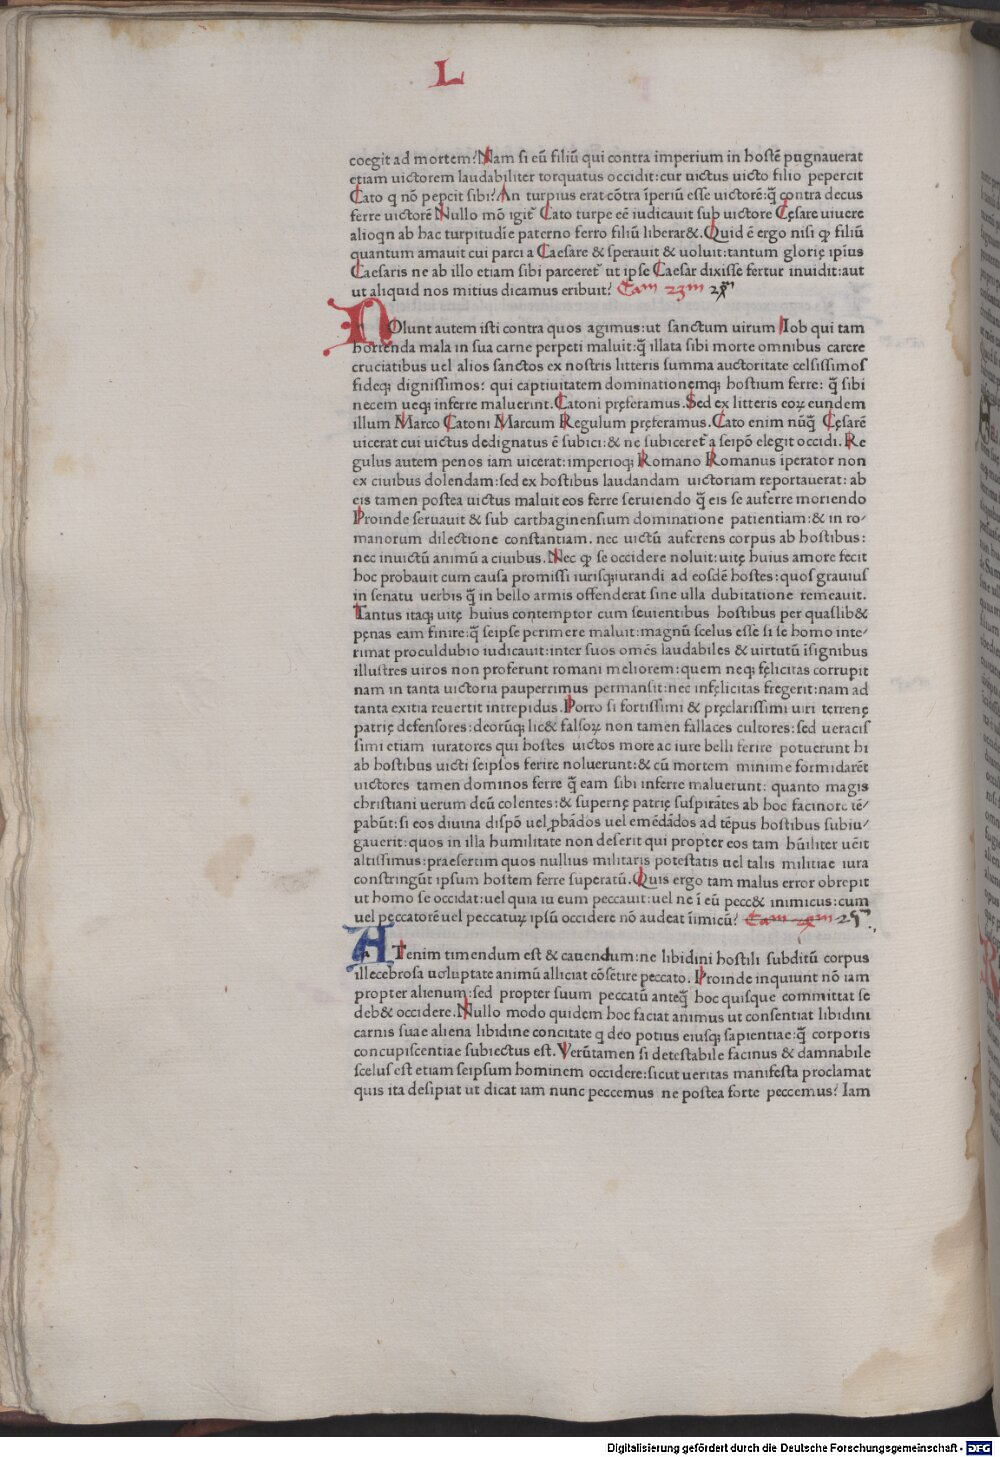 L
coegit ad mortem? Nam si eũ filiũ qui contra imperium in hostẽ pugnauerat
etiam uictorem laudabiliter torquatus occidit: cur uictus uicto filio pepercit
Cato q nõ peꝑcit sibi? An turpius erat cõtra ĩperiũ esse uictorẽ: q̃ contra decus
ferre uictorẽ Nullo mõ igit᷑ Cato turpe eẽ iudicauit sub uictore Cęsare uiuere
alioqn ab hac turpitudĩe paterno ferro filiũ liberar&. Quid ẽ ergo nisi ꝙ filiũ
quantum amauit cui parci a Caesare & sperauit & uoluit: tantum glorię ipĩus
Caesaris ne ab illo etiam sibi parceret᷑ ut ipse Caesar dixisse fertur inuidit: aut
ut aliquid nos mitius dicamus eribuit? Cam 23m
NOlunt autem isti contra quos agimus: ut sanctum uirum Iob qui tam
horrenda mala in sua carne perpeti maluit: q̃ illata sibi morte omnibus carere
cruciatibus uel alios sanctos ex nostris litteris summa auctoritate celsissimos
fideq; dignissimos: qui captiuitatem dominationemq; hostium ferre: q̃ sibi
necem ueq; inferre maluerint. Catoni pręferamus. Sed ex litteris eoꝝ eundem
illum Marco Catoni Marcum Regulum pręferamus. Cato enim nũq̃ Cęsarẽ
uicerat cui uictus dedignatus ẽ subici: & ne subiceret᷑ a seipõ elegit occidi. Re
gulus autem penos iam uicerat: imperioq; Romano Romanus iperator non
ex ciuibus dolendam: sed ex hostibus laudandam uictoriam reportauerat: ab
eis tamen postea uictus maluit eos ferre seruiendo q̃ eis se auferre moriendo
Proinde seruauit & sub carthaginensium dominatione patientiam: & in ro/
manorum dilectione constantiam. nec uictũ auferens corpus ab hostibus:
nec inuictũ animũ a ciuibus. Nec ꝙ se occidere noluit: uitę huius amore fecit
hoc probauit cum causa promissi iurisq;iurandi ad eosdẽ hostes: quos grauius
in senatu uerbis q̃ in bello armis offenderat sine ulla dubitatione remeauit.
Tantus itaq; uitę huius contemptor cum seuientibus hostibus per quaslib&
pęnas eam finire: q̃ seipse perimere maluit: magnũ scelus esse si se homo inte/
rimat proculdubio iudicauit: inter suos omẽs laudabiles & uirtutũ ĩsignibus
illustres uiros non proferunt romani meliorem: quem neq; fęlicitas corrupit
nam in tanta uictoria pauperrimus permansit: nec infęlicitas fregerit: nam ad
tanta exitia reuertit intrepidus. Porro si fortissimi & pręclarissimi uiri terrenę
patrię defensores: deorũq; lic& falsoꝝ non tamen fallaces cultores: sed ueracis
simi etiam iuratores qui hostes uictos more ac iure belli ferire potuerunt hi
ab hostibus uicti seipsos ferire noluerunt: & cũ mortem minime formidarẽt
uictores tamen dominos ferre q̃ eam sibi inferre maluerunt: quanto magis
christiani uerum deũ colentes: & supernę patrię suspirãtes ab hoc facinore tẽ/
pabũt: si eos diuina dispõ uel ꝓbãdos uel emẽdãdos ad tẽpus hostibus subiu/
gauerit: quos in illa humilitate non deserit qui propter eos tam hũiliter uẽit
altissimus: praesertim quos nullius militaris potestatis uel talis militiae iura
constringũt ipsum hostem ferre superatũ. Quis ergo tam malus error obrepit
ut homo se occidat: uel quia iu eum peccauit: uel ne ĩ eũ pecc& inimicus: cum
uel peccatorẽ uel peccatuꝝ ipsũ occidere nõ audeat ĩimicũ?
ATenim timendum est & cauendum: ne libidini hostili subditũ corpus
illecebrosa uoluptate animũ alliciat cõsẽtire peccato. Proinde inquiunt nõ iam
propter alienum: sed propter suum peccatũ anteq̃ hoc quisque committat se
deb& occidere. Nullo modo quidem hoc faciat animus ut consentiat libidini
carnis suae aliena libidine concitate q deo potius eiusq; sapientiae: q̃ corporis
concupiscentiae subiectus est. Verũtamen si detestabile facinus & damnabile
scelus est etiam seipsum hominem occidere: sicut ueritas manifesta proclamat
quis ita desipiat ut dicat iam nunc peccemus ne postea forte peccemus? Iam
Digitalisierung gefördert durch die Deutsche Forschungsgemeinschaft - DFG